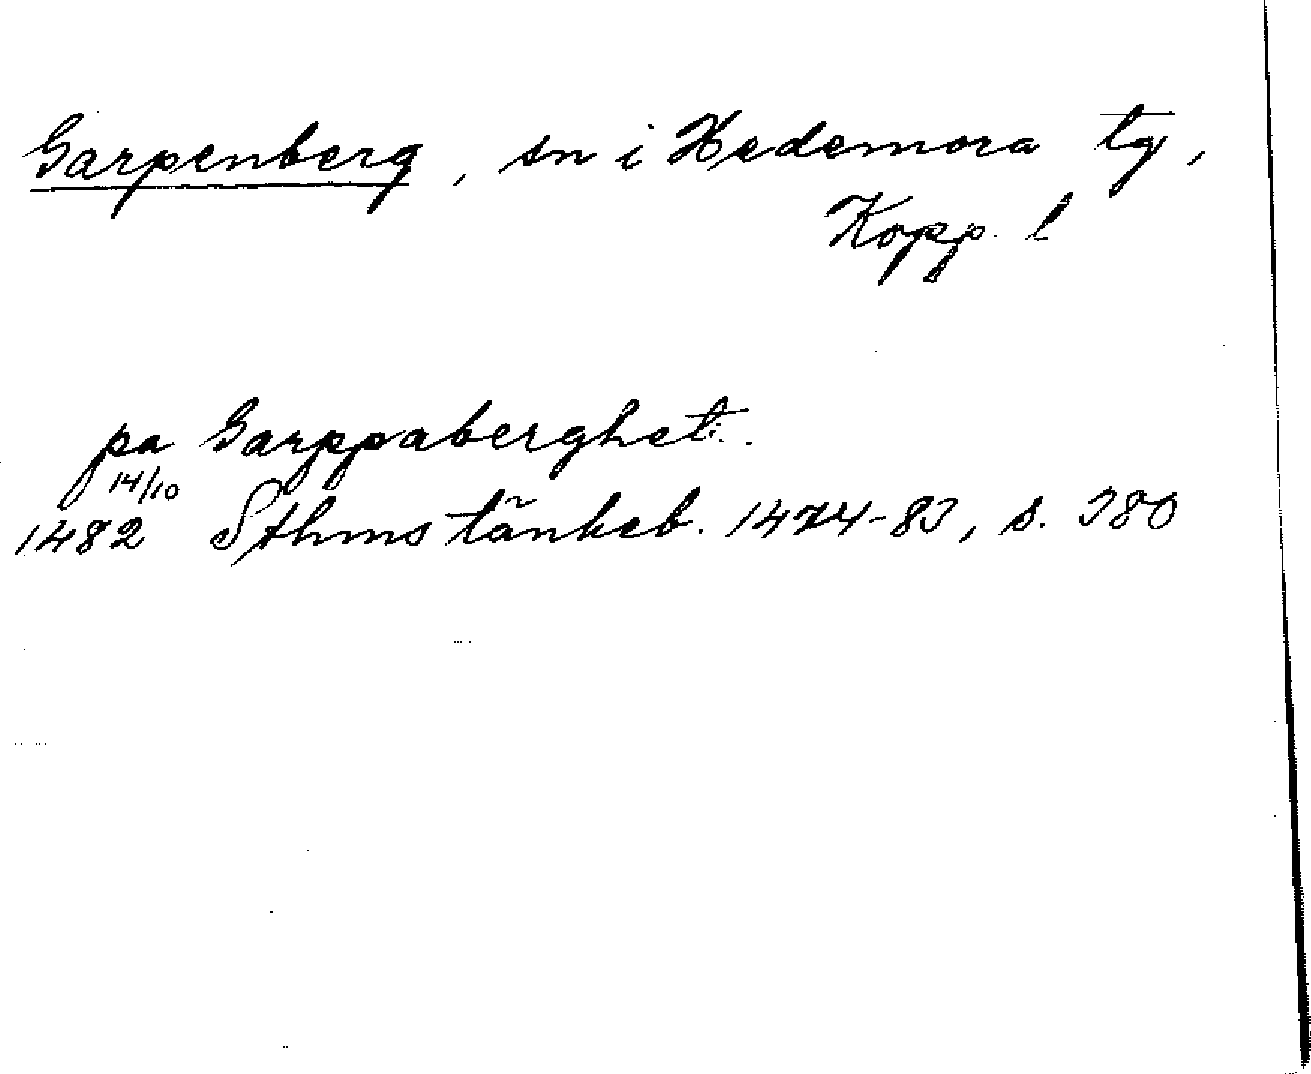 Garpenberg, sn i Hedemora tg,
Kopp. l
pa Garppaberghet.
14/10
1482 Sthms tänkeb. 1474-83, s. 380